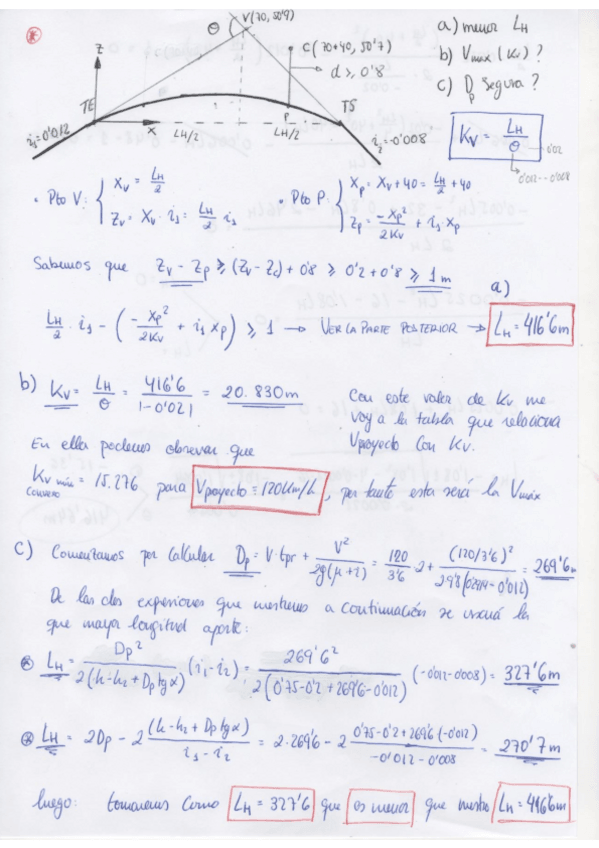 V(70, 50'9)
θ
C(70+40, 50'7)
d ≥ 0'8
a) menor LH
b) Vmáx (Kv) ?
c) Dp segura ?
z
TE
TS
P
x
i1=0'012
LH/2
LH/2
i2=-0'008
Kv = LH/θ
0'02
0'012--0'008
• Pto V: { Xv = LH/2
Zv = Xv · i1 = LH/2 i1
• Pto P: { Xp = Xv+40 = LH/2 +40
Zp = -Xp²/2Kv + i1 Xp
Sabemos que Zv - Zp ≥ (Zv - Zc) + 0'8 ≥ 0'2 + 0'8 ≥ 1 m
a)
LH/2 · i1 - (-Xp²/2Kv + i1 Xp) ≥ 1 → VER LA PARTE POSTERIOR → LH = 416'6m
b) Kv = LH/θ = 416'6/|-0'02| = 20.830m
Con este valor de Kv me
voy a la tabla que relaciona
Vproyecto con Kv.
En ella podemos observar que
Kv mín convexo = 15.276 para Vproyecto = 120Km/h, por tanto esta será la Vmáx
C) Comenzamos por calcular Dp = V·tpr + V²/2g(μ+i) = 120/3'6 · 2 + (120/3'6)²/2·9'8(0'291-0'012) = 269'6m
De las dos expresiones que mostramos a continuación se usará la
que mayor longitud aporte:
* LH = Dp²/2(h-h2+Dp tgα) (i1-i2) = 269'6²/2(0'75-0'2+269'6-0'012) (-0'012-0'008) = 327'6m
* LH = 2Dp - 2 (h-h2+Dp tgα)/i1-i2 = 2·269'6 - 2 0'75-0'2+269'6(-0'012)/-0'012-0'008 = 270'7m
luego: tomaremos como LH = 327'6 que es menor que nuestro LH = 416'6m